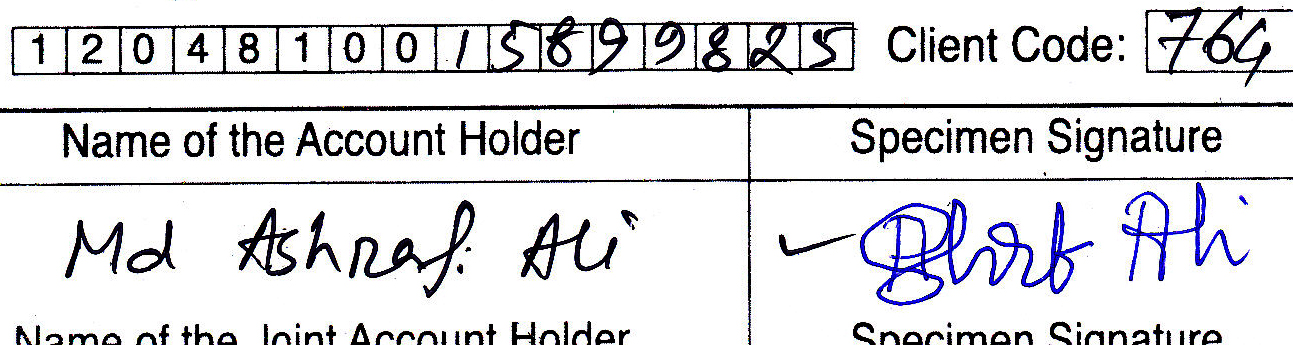 1204810015899825 Client Code: 764
Name of the Account Holder Specimen Signature
Md Ashraf Ali Ali
Name of the Joint Account Holder Specimen Signature